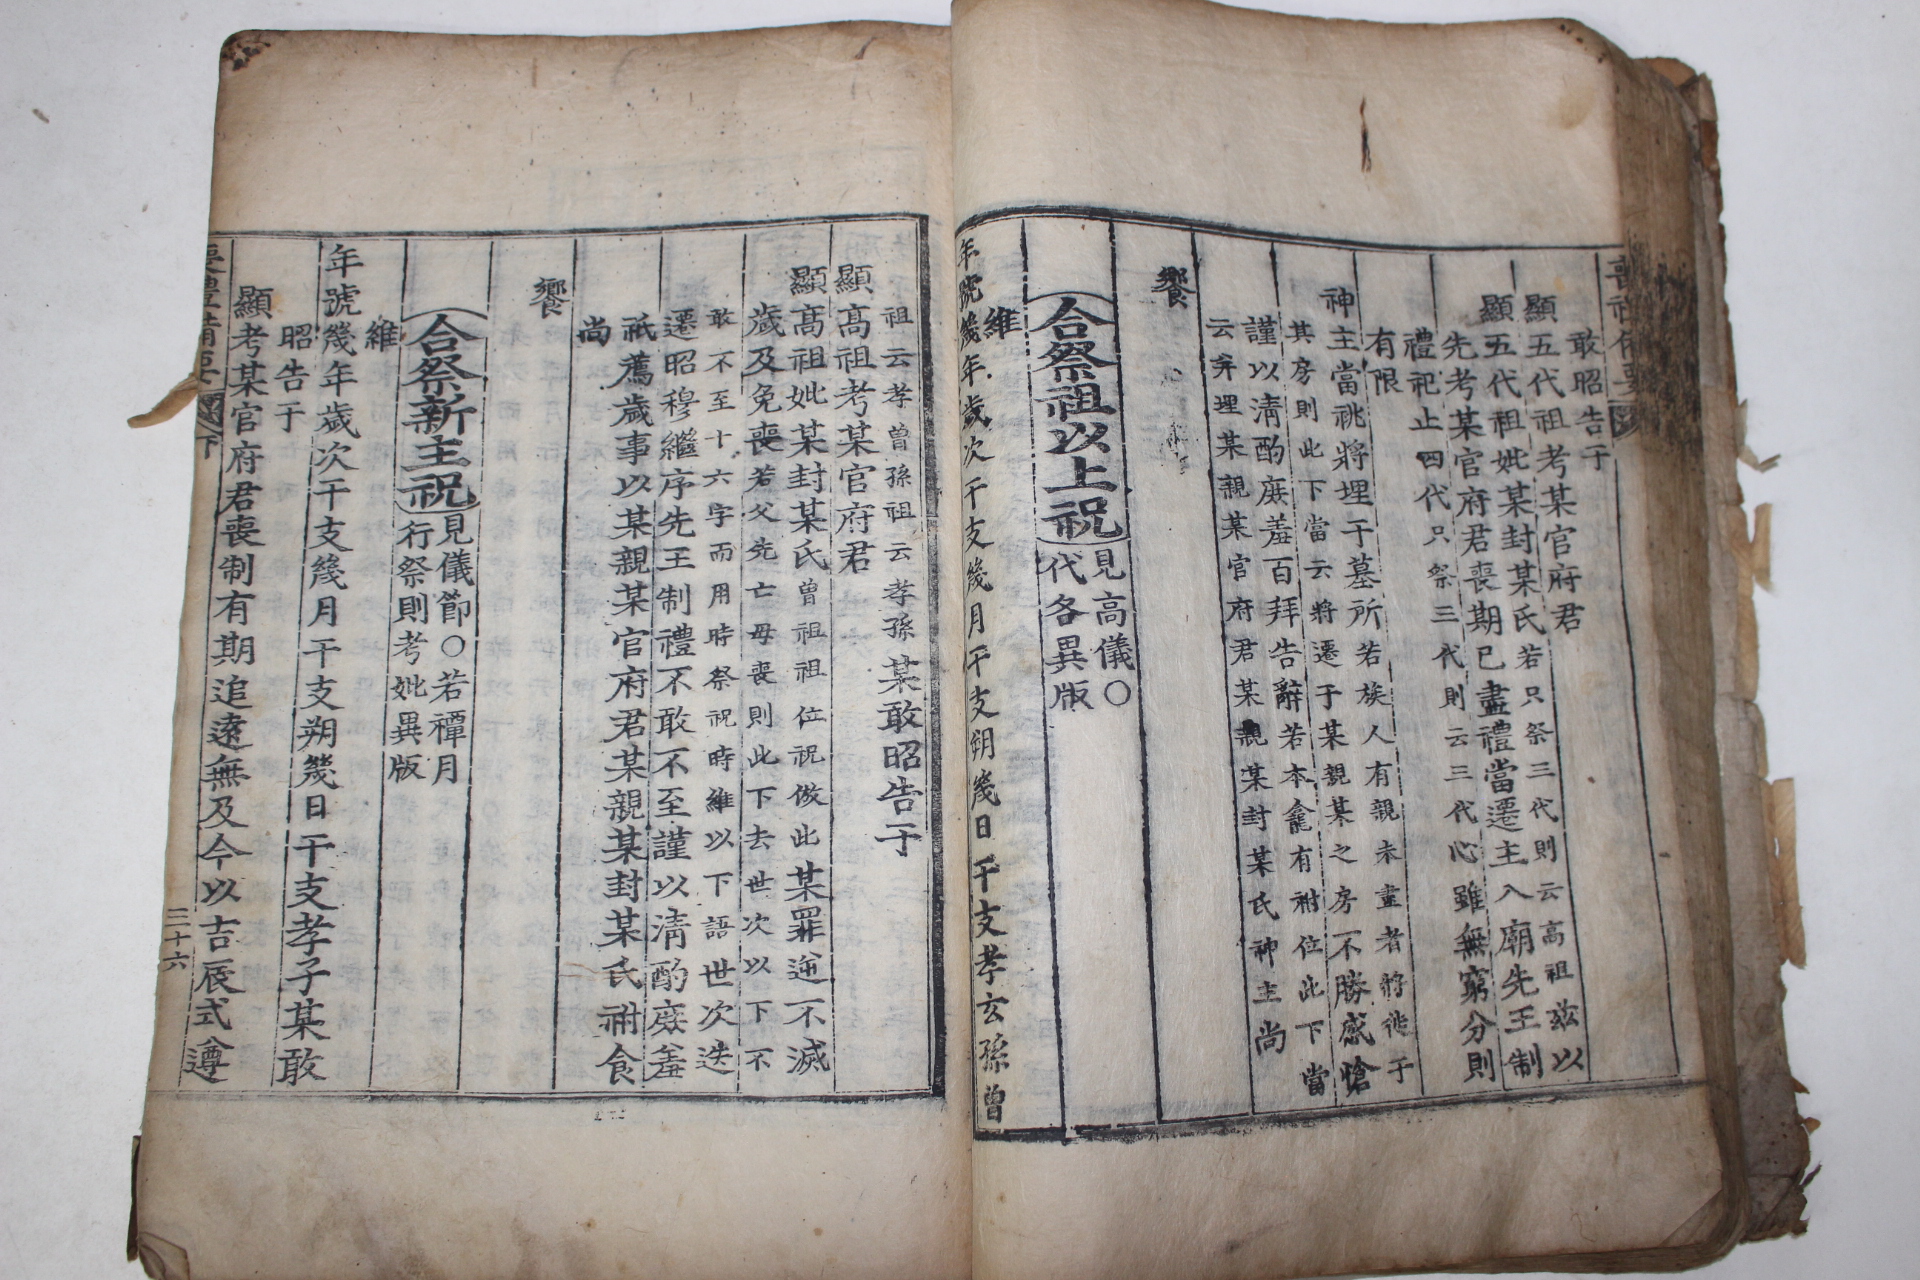 喪禮備要
敢昭告于
顯五代祖考某官府君
顯五代祖妣某封某氏若只祭三代則云高祖玆以
先考某官府君喪期已盡禮當遷主入廟先王制
禮祀止四代只祭三代則云三代心雖無窮分則
有限
神主當祧將埋于墓所若族人有親未盡者將徙于
其房則此下當云將遷于某親某之房不勝感愴
謹以淸酌庶羞百拜告辭若本龕有祔位此下當
云弁埋某親某官府君某親某封某氏神主尚
饗
合祭祖以上祝見高儀〇
代各異版
維
年號幾年歲次干支幾月干支朔幾日干支孝玄孫曾
祖云孝曾孫祖云孝孫某敢昭告于
顯高祖考某官府君
顯高祖妣某封某氏曾祖祖位祝倣此某罪逆不滅
歲及免喪若父先亡母喪則此下去世次以下不
敢不至十六字而用時祭祝時維以下語世次迭
遷昭穆繼序先王制禮不敢不至謹以淸酌庶羞
祇薦歲事以某親某官府君某親某封某氏祔食
尚
饗
合祭新主祝見儀節〇若禫月
行祭則考妣異版
維
年號幾年歲次干支幾月干支朔幾日干支孝子某敢
昭告于
顯考某官府君喪制有期追遠無及今以吉辰式遵
喪禮備要 下 三十六